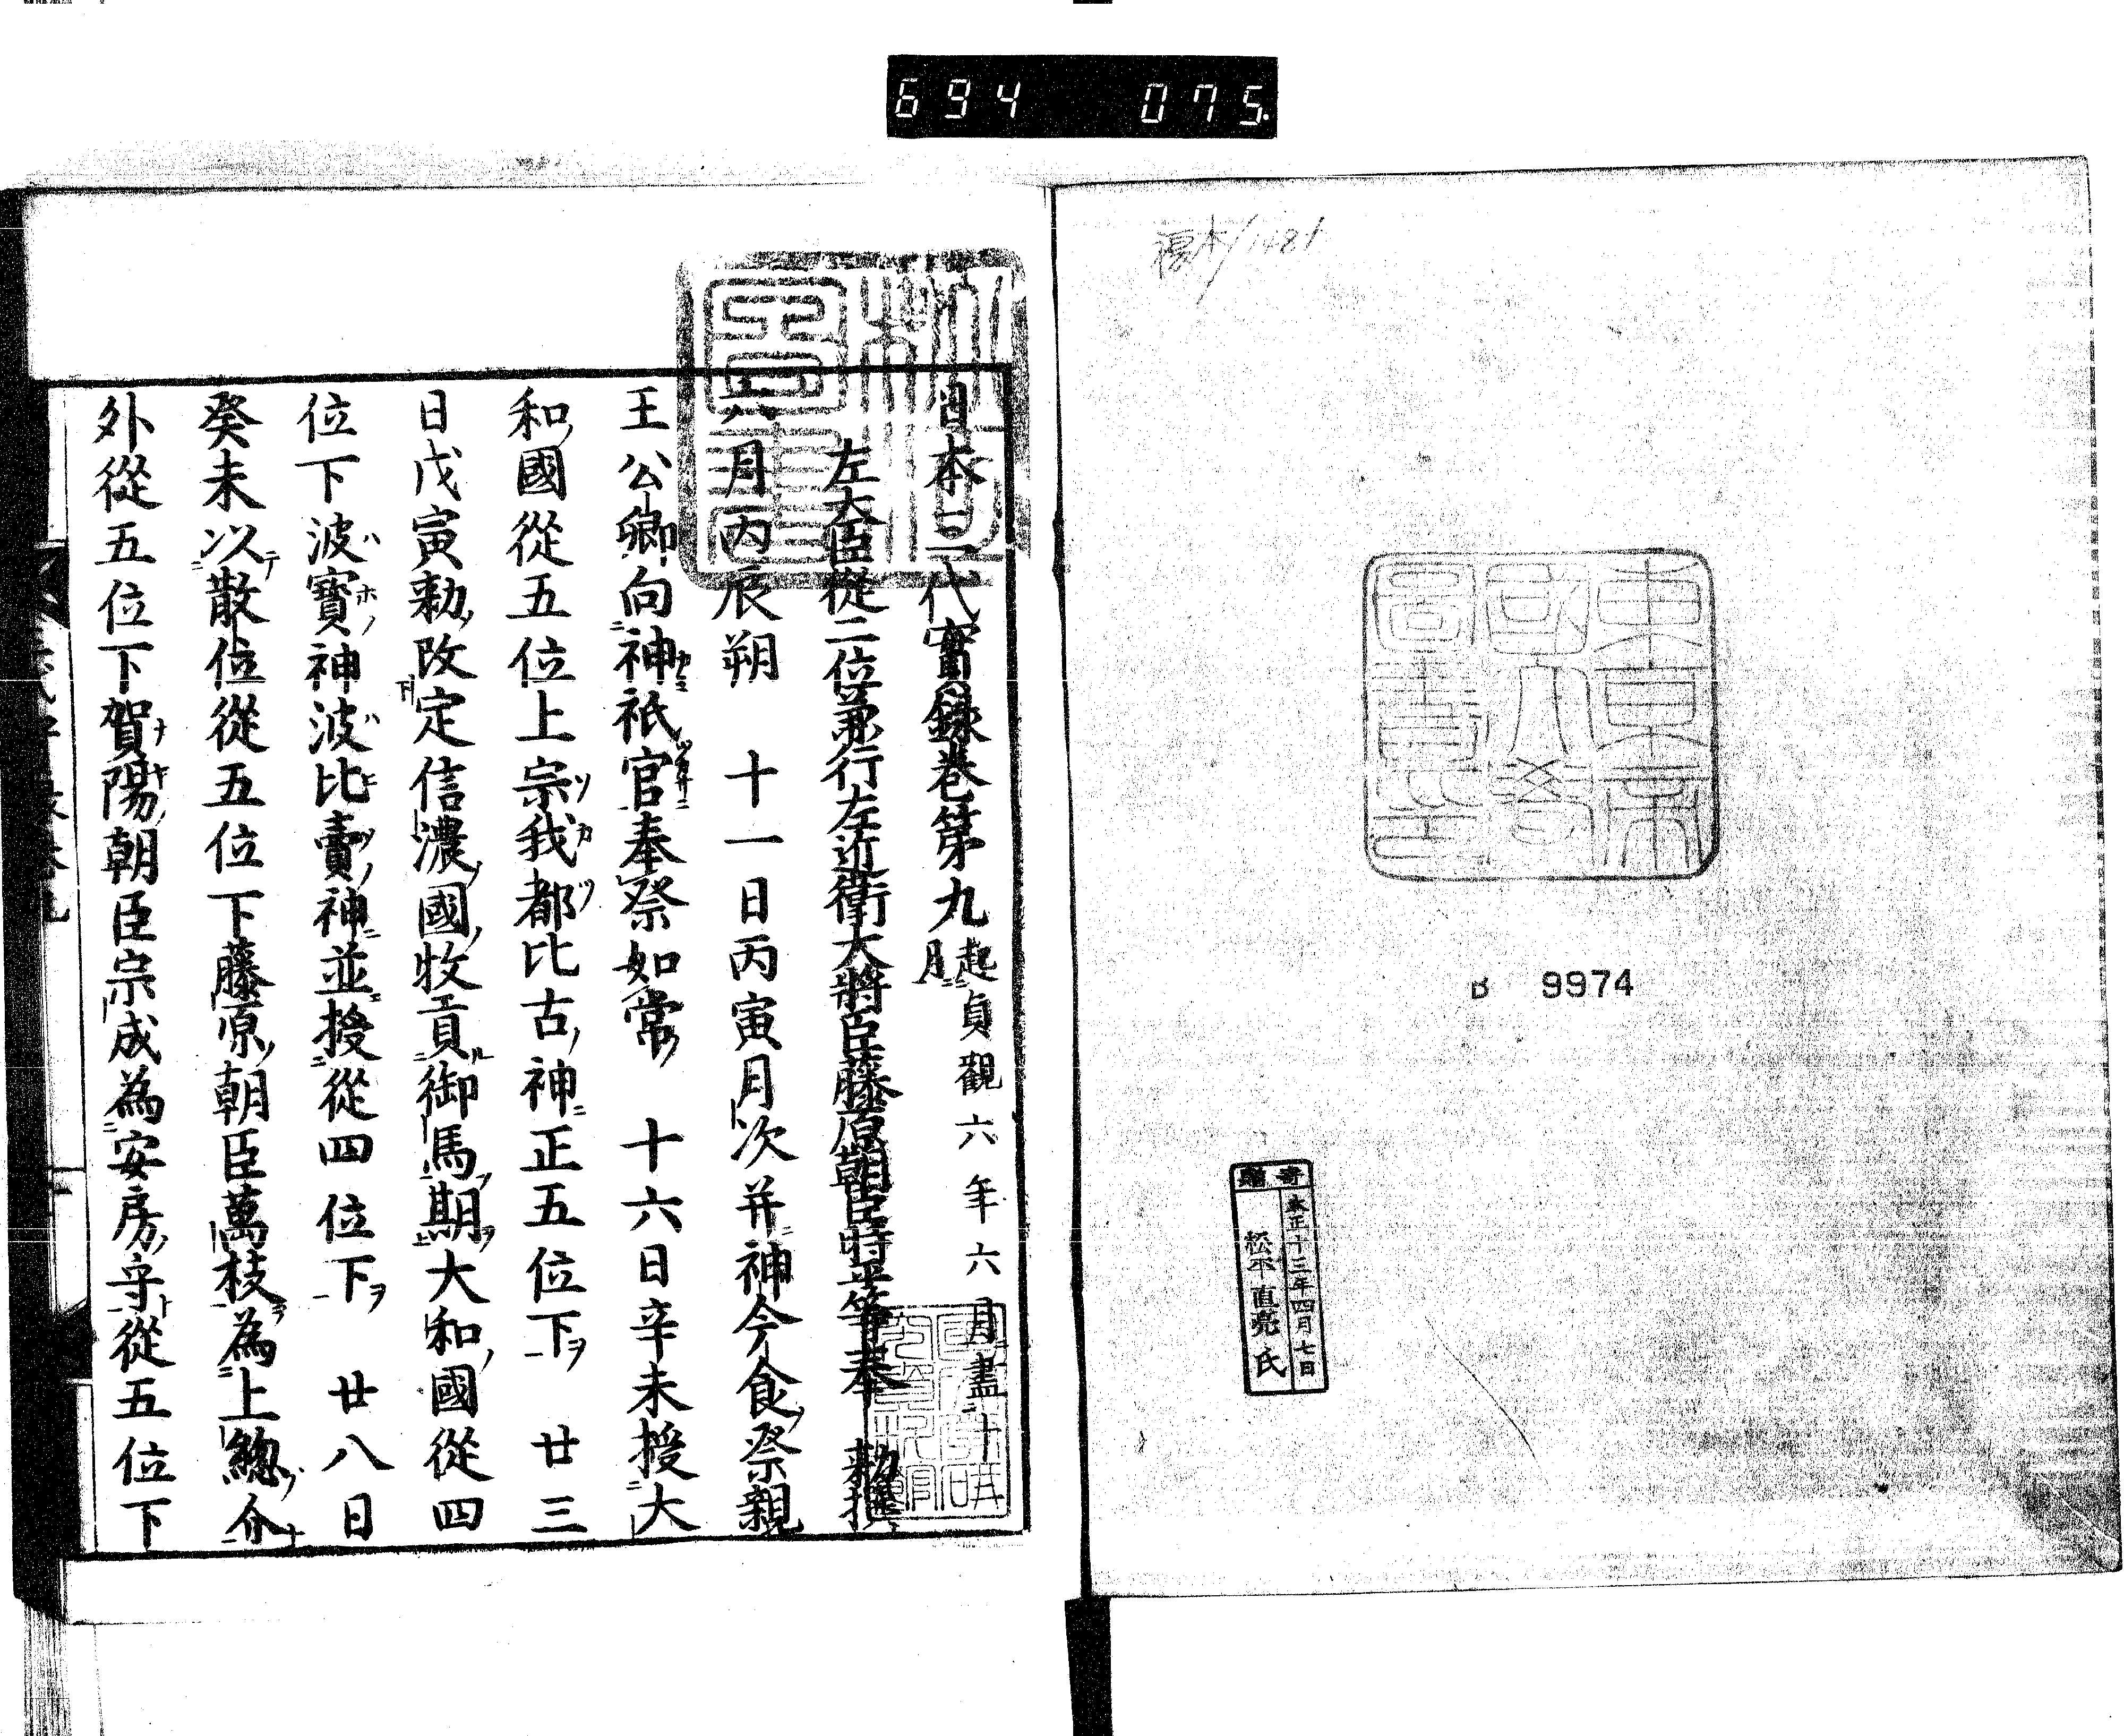 694 075.
複本/1481
東京帝
國大學
圖書印
B 9974
寄贈
大正十三年四月七日
松平直亮氏
日本三代實録巻第九 起貞觀六年六月盡十
月
左大臣從二位兼行左近衛大將臣藤原朝臣時平等奉 勅撰
六月丙辰朔 十一日丙寅月次并神今食祭親
王公卿向神祇官奉祭如常 十六日辛未授大
和國從五位上宗我都比古神正五位下 廿三
日戊寅勅改定信濃國牧貢御馬期大和國從四
位下波寳神波比賣神並授從四位下 廿八日
癸未以散位從五位下藤原朝臣萬枝為上總介
外從五位下賀陽朝臣宗成為安房守從五位下